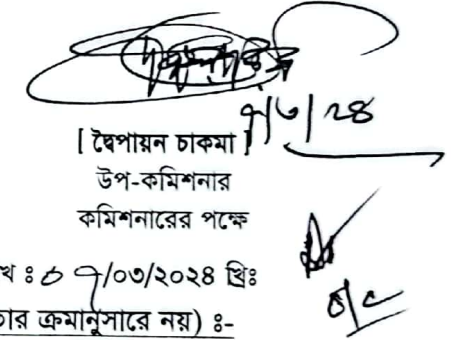 ৭/৩/২৪
[ দ্বৈপায়ন চাকমা ]
উপ-কমিশনার
কমিশনারের পক্ষে
খ ঃ ০৭/০৩/২০২৪ খ্রিঃ
তার ক্রমানুসারে নয়) ঃ-